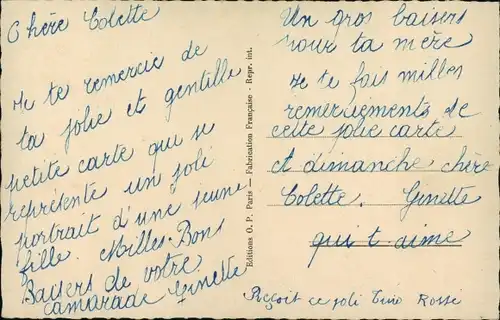 Chère Colette
Je te remercie de
ta jolie et gentille
petite carte qui se
représente un joli
portrait d'une jeune
fille. Milles. Bons
Baisers de votre
camarade Ginette
Editions O. P. Paris — Fabrication Française - Repr. int.
Un gros baisers
pour ta mère
Je te fais milles
remerciements de
cette jolie carte
et dimanche chère
Colette. Ginette
qui t. aime
Reçoit ce joli Tino Rosse